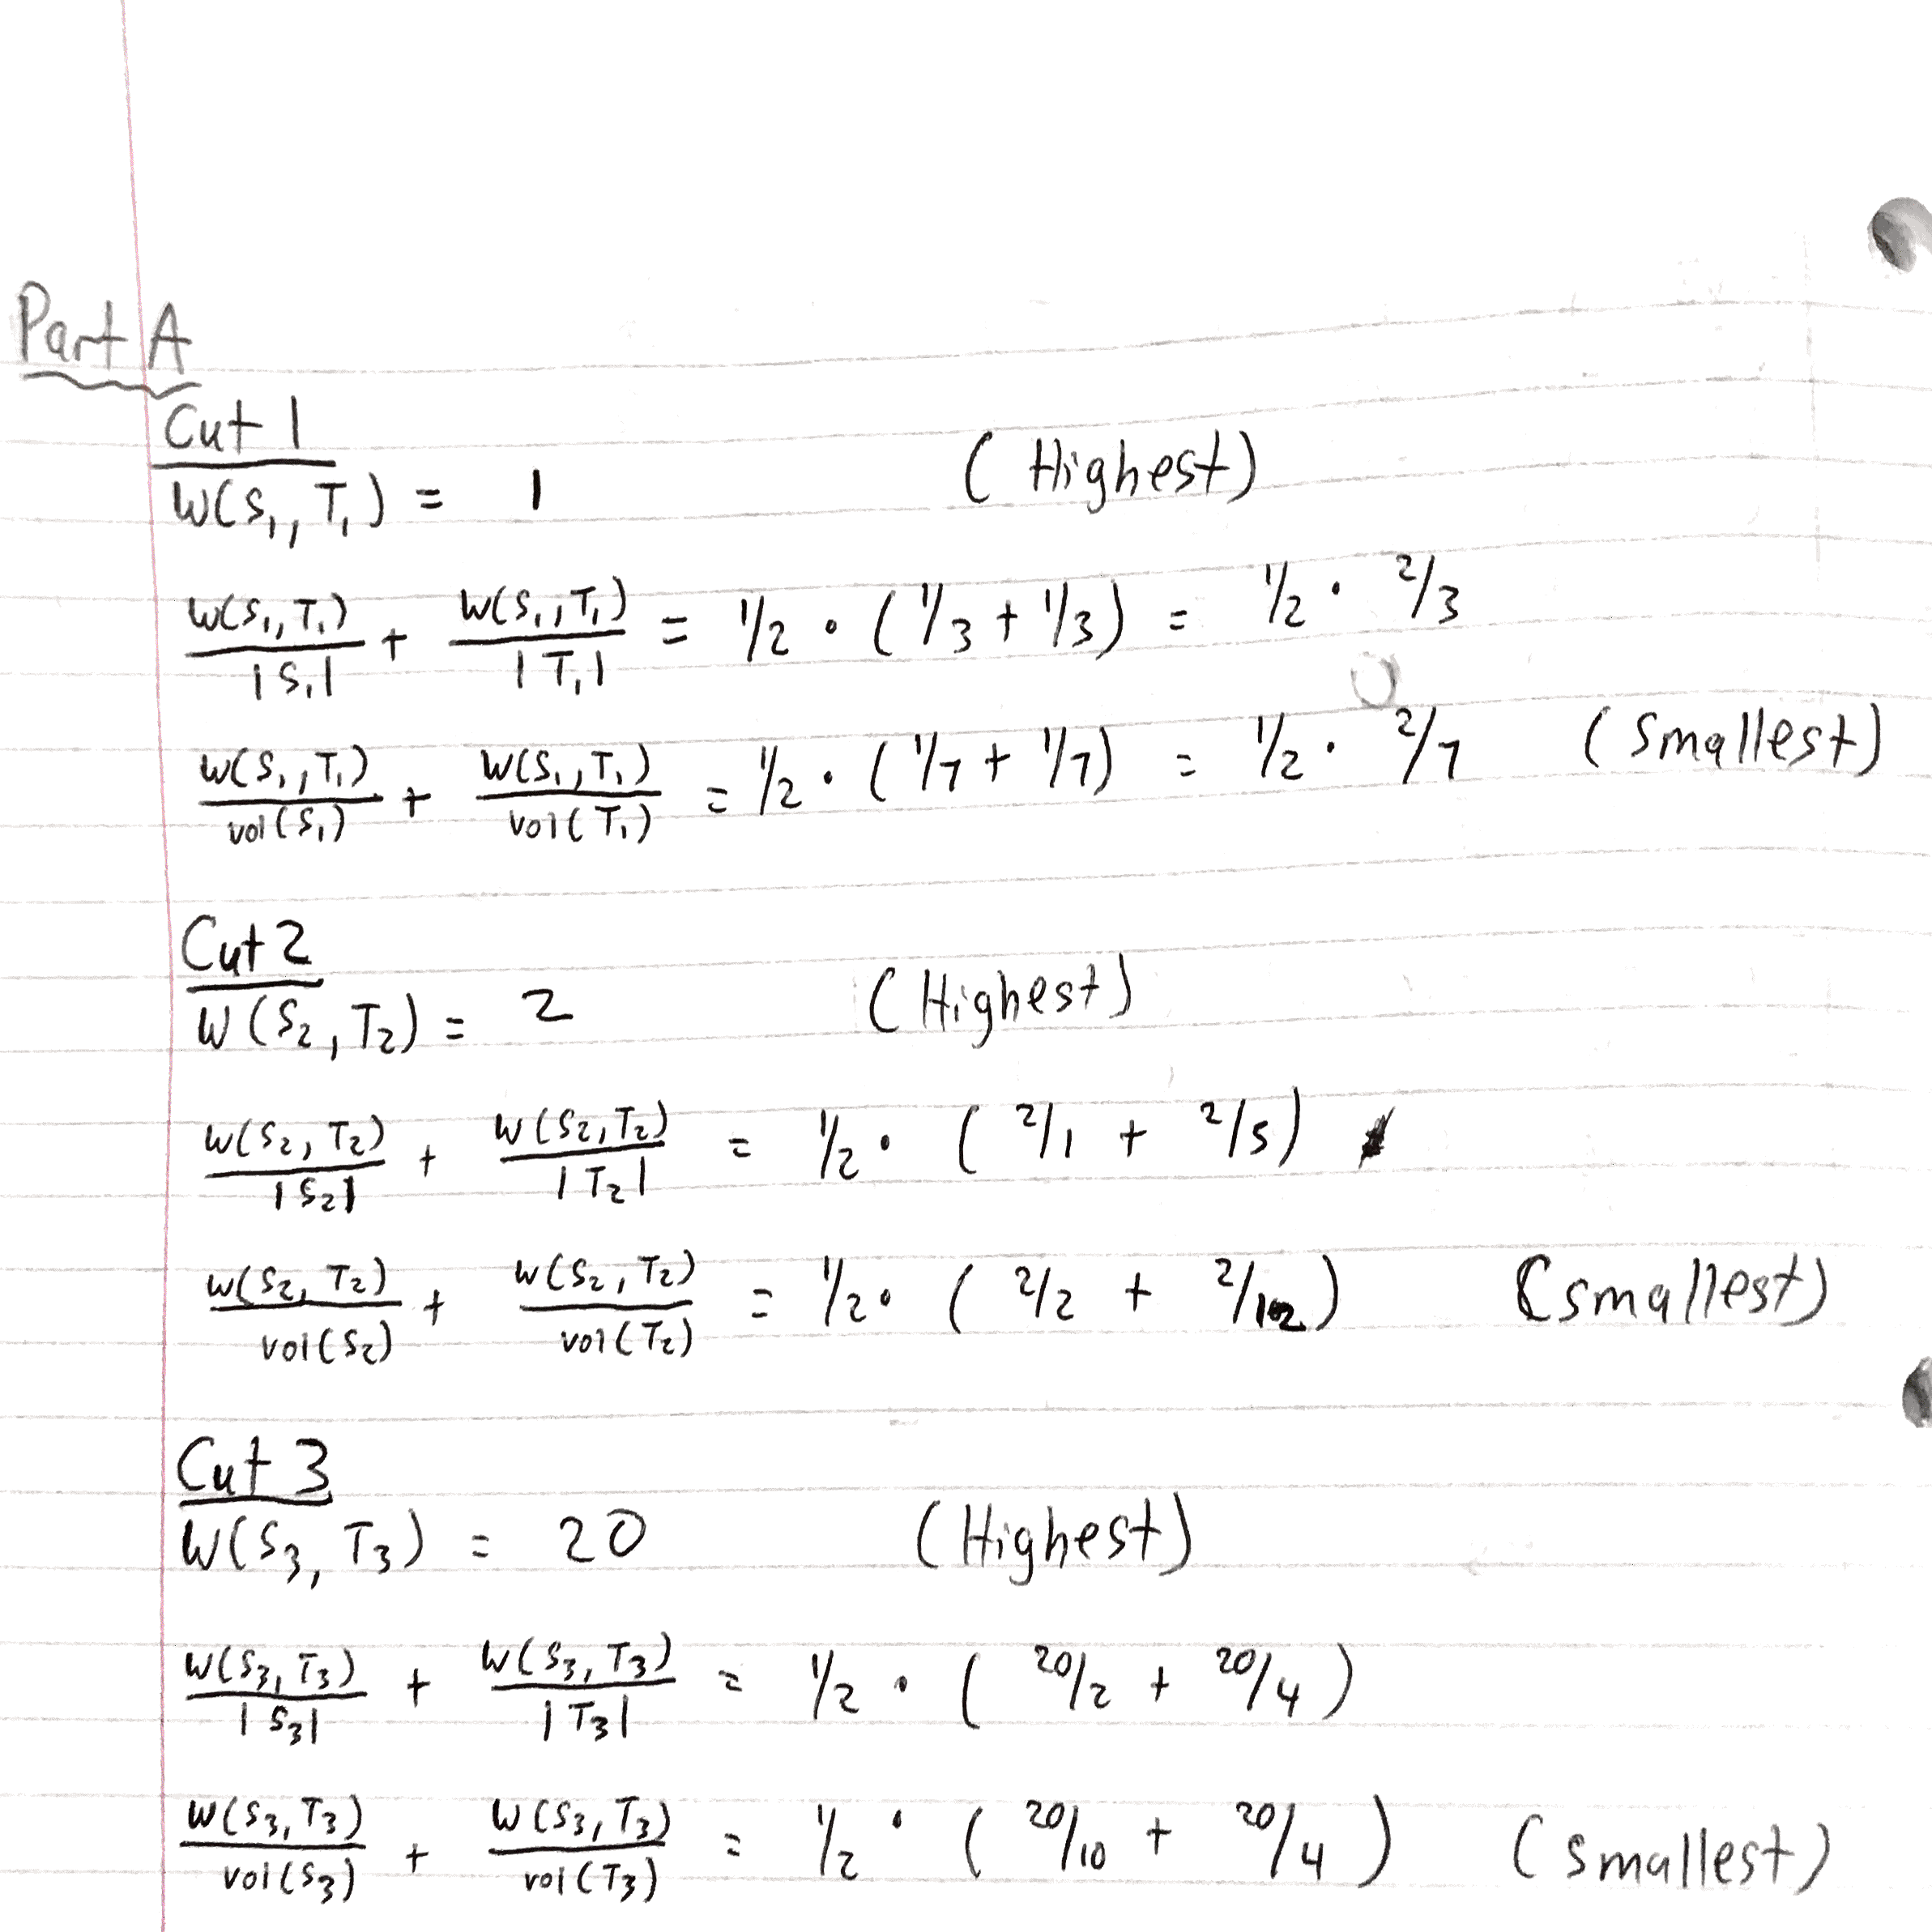 Part A
Cut 1
W(S₁, T₁) = 1 (Highest)
W(S₁,T₁)/|S₁| + W(S₁,T₁)/|T₁| = 1/2 · (1/3 + 1/3) = 1/2 · 2/3
W(S₁,T₁)/vol(S₁) + W(S₁,T₁)/vol(T₁) = 1/2 · (1/7 + 1/7) = 1/2 · 2/7 (smallest)
Cut 2
W(S₂, T₂) = 2 (Highest)
W(S₂,T₂)/|S₂| + W(S₂,T₂)/|T₂| = 1/2 · (2/1 + 2/5)
W(S₂,T₂)/vol(S₂) + W(S₂,T₂)/vol(T₂) = 1/2 · (2/2 + 2/12) (smallest)
Cut 3
W(S₃, T₃) = 20 (Highest)
W(S₃,T₃)/|S₃| + W(S₃,T₃)/|T₃| = 1/2 · (20/2 + 20/4)
W(S₃,T₃)/vol(S₃) + W(S₃,T₃)/vol(T₃) = 1/2 · (20/10 + 20/4) (smallest)